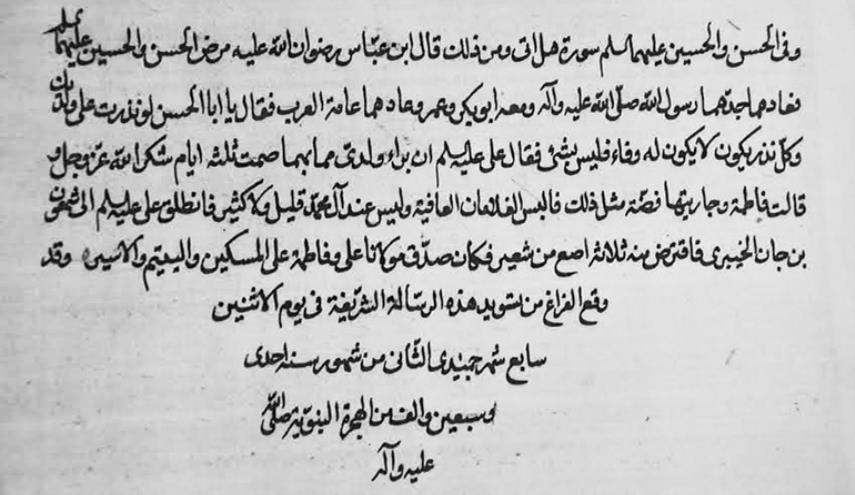 وفی الحسن والحسین علیهما السلم سورة هل اتی ومن ذلك قال ابن عبّاس رضوان اللّه علیه مرض الحسن والحسین علیهما السلم
فعادهما جدّهما رسول اللّه صلّی اللّه علیه وآله ومعه ابوبکر وعمر وعادهما عامة العرب فقال یا ابا الحسن لو نذرت علی ولدیك
وکلّ نذر یکون لا یکون له وفاء فلیس بشئ فقال علی علیه السلم ان براء ولدیّ مما بهما صمت ثلثه ایام شکر اللّه عزّ وجل و
قالت فاطمة وجاریتها فضّة مثل ذلك فالبس الغلامان العافیة ولیس عند آل محمّد قلیل ولا کثیر فانطلق علی علیه السلم الی شمعون
بن حان الخیبری فاقترض منه ثلاثه اصع من شعیر فکان صدّق مولانا علی وفاطمة علی المسکین والیتیم والاسیر وقد
وقع الفراغ من تسوید هذه الرسالة الشریفة فی یوم الاثنین
سابع شهر جمیدی الثانی من شهور سنه احدی
وسبعین والف من الهجرة النبویة صلّی اللّه
علیه وآله